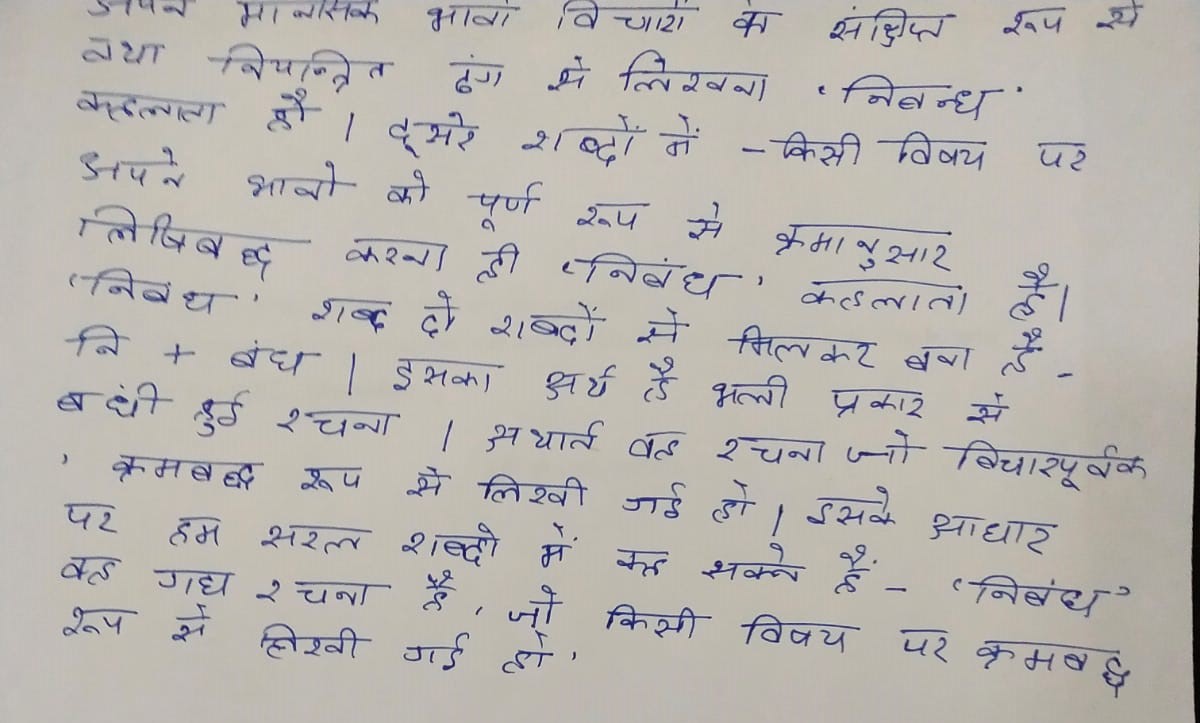 अपने मानसिक भावों विचारों को संक्षिप्त रूप से
तथा नियन्त्रित ढंग से लिखना 'निबन्ध'
कहलाता है । दूसरे शब्दों में - किसी विषय पर
अपने भावो को पूर्ण रूप से क्रमानुसार
लिपिबद्ध करना ही 'निबंध' कहलाता है।
'निबंध' शब्द दो शब्दों से मिलकर बना है -
नि + बंध | इसका अर्थ है भली प्रकार से
बंधी हुई रचना । अथार्त वह रचना जो विचारपूर्वक
, क्रमबद्ध रूप से लिखी गई हो । इसके आधार
पर हम सरल शब्दो में कह सकते हैं - 'निबंध'
वह गद्य रचना है , जो किसी विषय पर क्रमबद्ध
रूप से लिखी गई हो ,